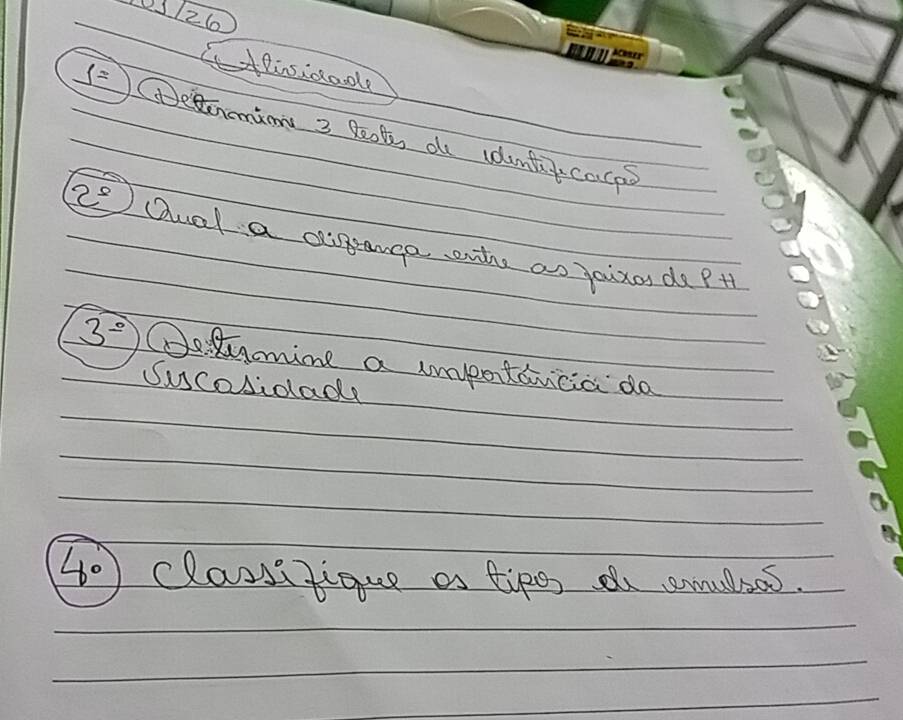 03/26
Atividade
1º Determine 3 testes de identificação
2º Qual a difrança entre as faixas de PH
3º Determine a importância da
Viscosidade
4º Classifique os tipos de emulsão.
ACRILEX